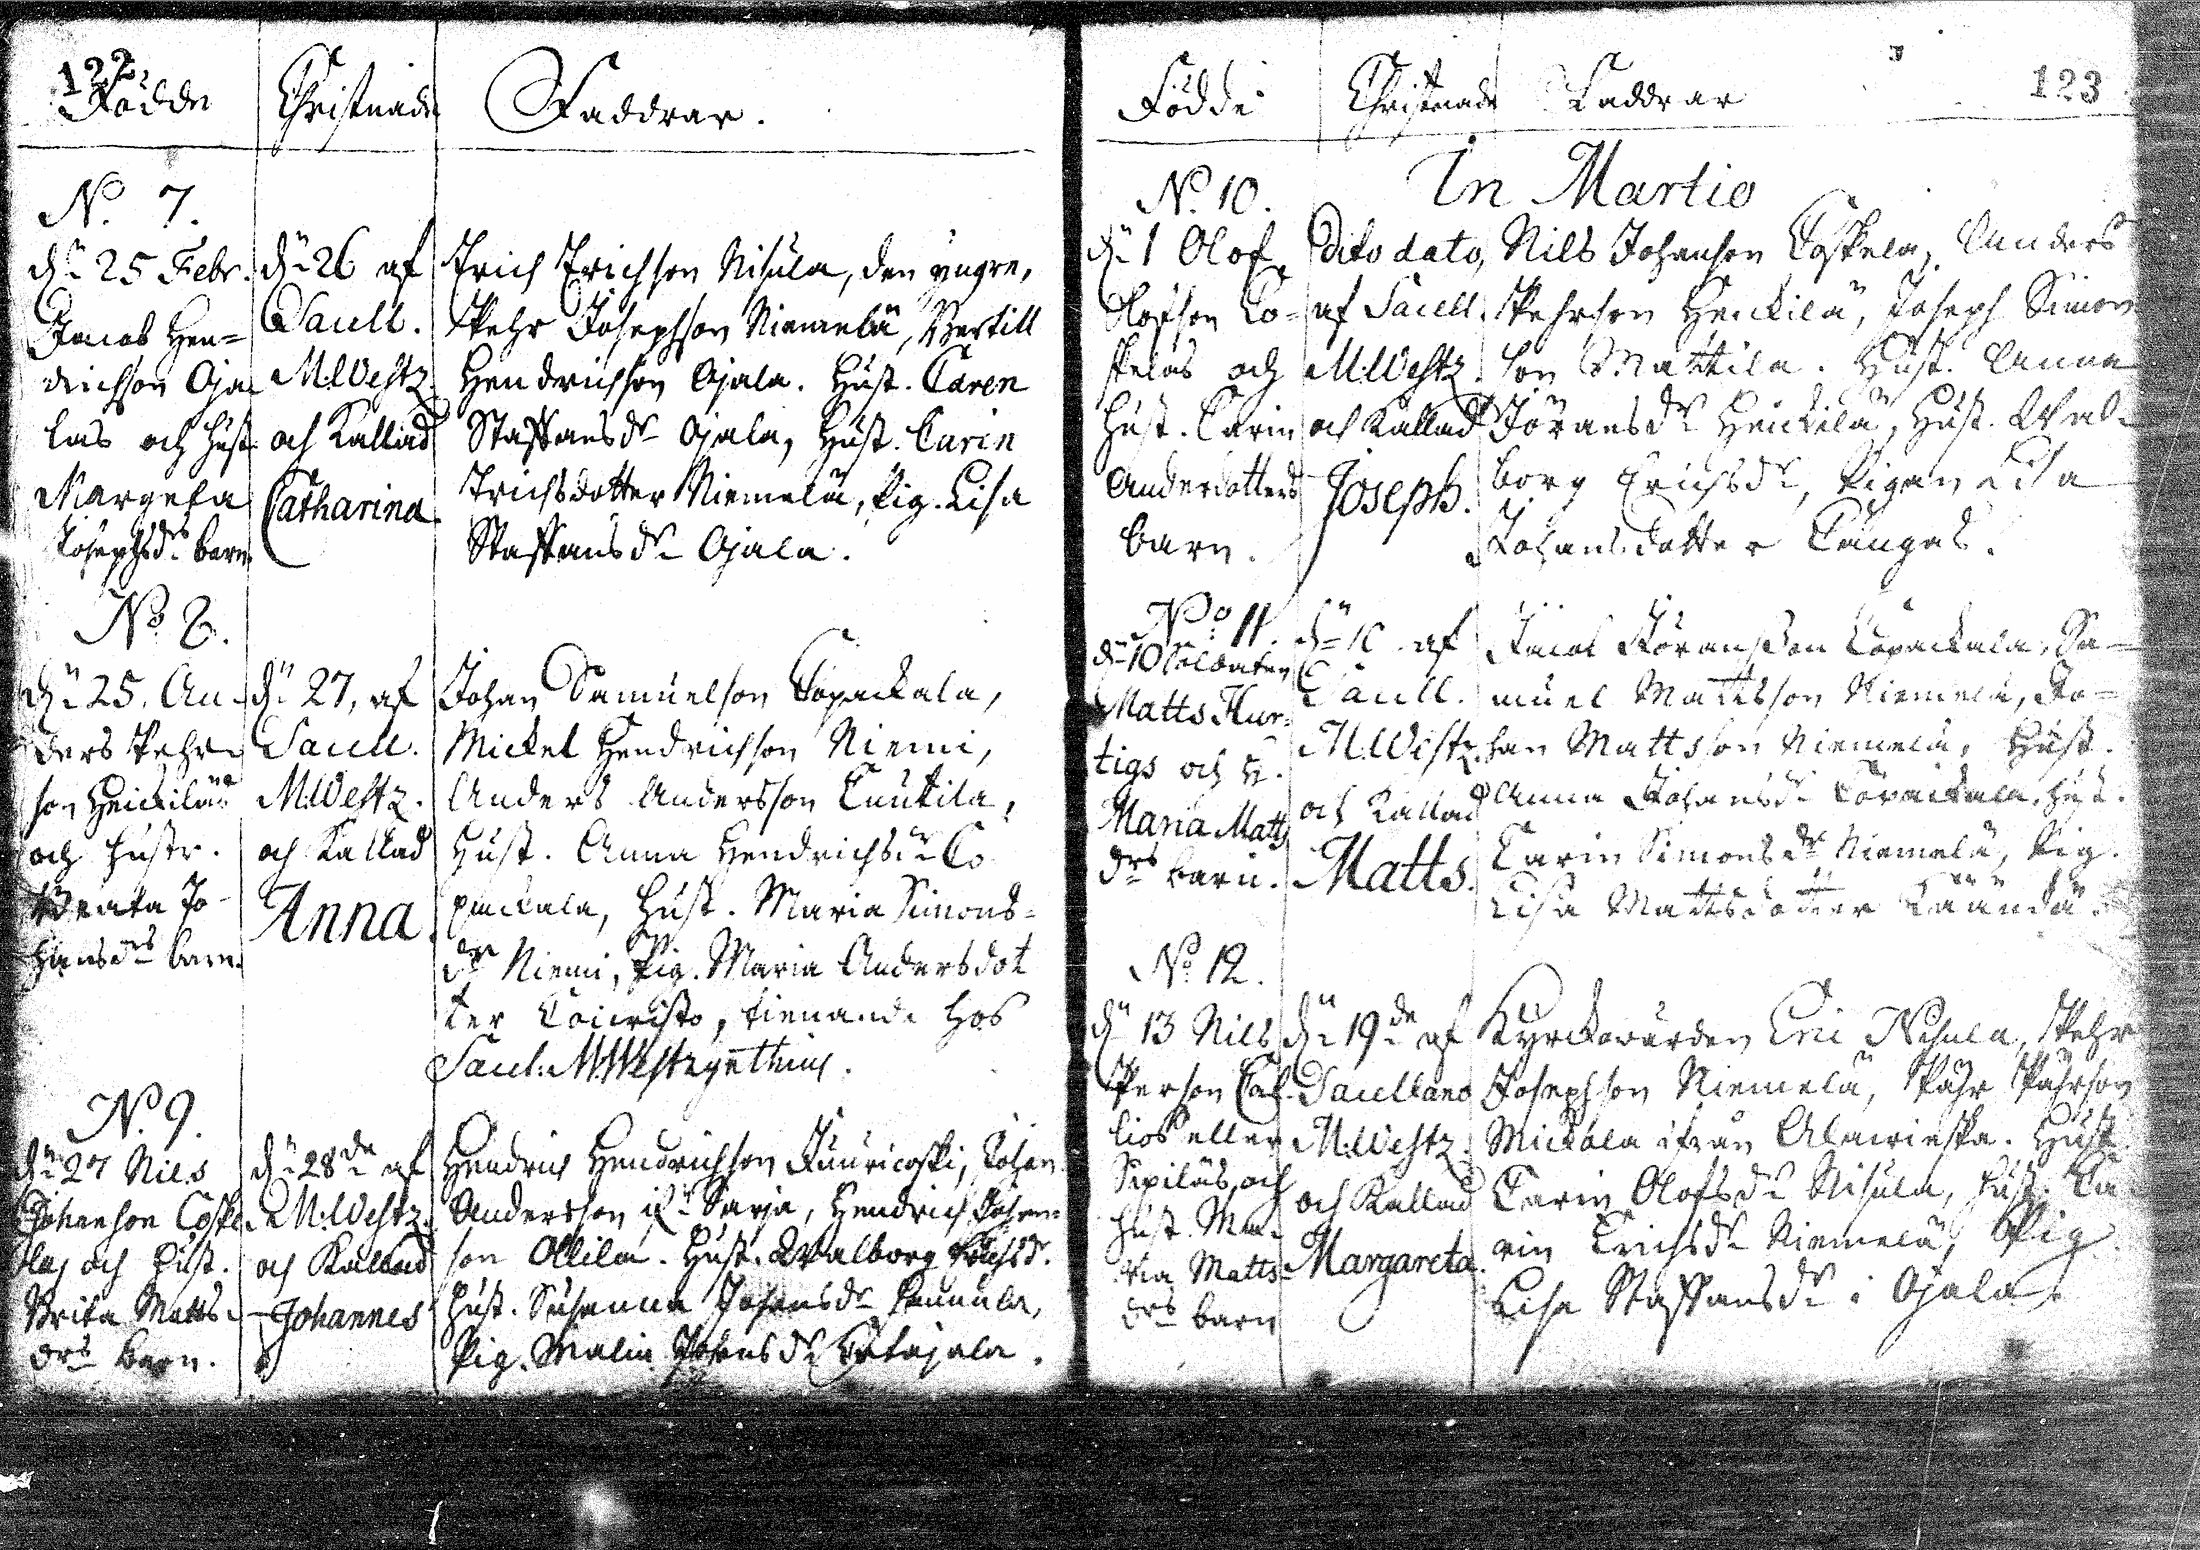 122
Födde Christnade Faddrar.
No. 7.
dn 25 Febr.
Jacob Hen=
drichson Oja
las och Hust.
Margeta
Josephsdrs barn
dn 26 af
Sacell.
M:Westz.
och Kallad
Catharina.
Erich Erichson Nisula, den yngre,
Pehr Josephson Niemelä, Bertill
Hendrichson Ojala. Hust. Caren
Staffansdr Ojala, Hust. Carin
Erichsdotter Niemelä, Pig. Lisa
Staffansdr Ojala.
No. 8.
dn 25. An-
ders Pehr-
son Heickiläs
och hustr.
Beata Jo-
hansdrs barn.
dn 27, af
Sacell.
M:Westz.
och Kallad
Anna.
Johan Samuelson Copackala,
Mickel Hendrichson Niemi,
Anders Andersson
Hust. Anna Hendrichsdr Co
packala, Hust. Maria Simons=
dr Niemi, Pig. Maria Andersdot
ter tienande hos
Sacel. M:Westzynthius.
No. 9.
dn 27 Nils
Johanson Coske
las och Hust.
Brita Matts-
drs barn.
dn 28de af
M:Westz.
och Kallad
Johannes
Hendrich Hendrichson Juuricoski, Johan
Andersson Sarja, Hendrich
son Ollila. Hust. Walborg Erichsdr.
Hust. Susanna Johansdr
Pig. Malin Johansdr Catajala.
123
Födde Christnade Faddrar
In Martio
No. 10.
dn 1 Olof
Olofson Co=
skelas och
Hust. Carin
Andersdotters
barn.
Dito dato,
af Sacell.
M:Westz.
och Kallad
Joseph.
Nils Johanson Coskela, Anders
Pehrson Heickilä, Joseph Simon
son Mattila. Hust. Anna
Jöransdr Heickilä, Hust. Wal-
borg Erichsdr, Pigan Lisa
Johansdotter Cangas.
No. 11.
dn 10 Soldaten
Matts Hur=
tigs och h.
Maria Matts
drs barn.
dn 10 af
Sacell.
M:Westz.
och Kallad
Matts.
Jacob Jöransson Copackala, Sa-
muel Mattsson Niemelä, Jo-
han Mattsson Niemelä, Hust.
Anna Johansdr Copackala, Hust.
Carin Simonsdr Niemelä, Pig.
Lisa Mattsdotter
No. 12.
dn 13 Nils
Person Cal-
lios eller
Sipiläs, och
Hust. Ma-
ria Matts-
drs barn
dn 19de af
Sacellano
M:Westz.
och Kallad
Margareta.
Kyrckwärden Eric Nisula, Pehr
Josephson Niemelä, Pähr Pährson
Mickola ifrån Alawieska. Hust
Carin Olofsdr Nisula, Hust. Ca
rin Erichsdr Niemelä, Pig
Lisa Staffansdr i Ojala.